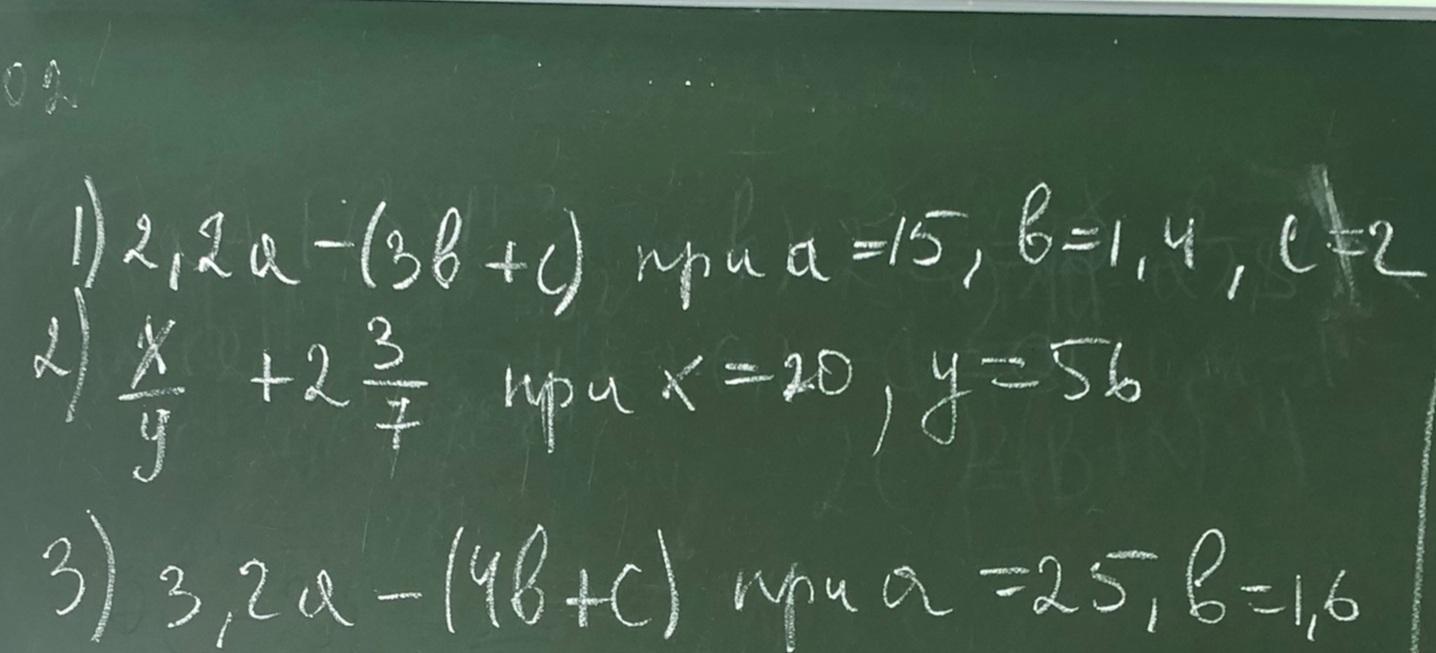 02
1) 2,2a - (3b + c) при a = 15, b = 1,4, c = 2
2) x/y + 2 3/7 при x = 20, y = 56
3) 3,2a - (4b + c) при a = 25, b = 1,6